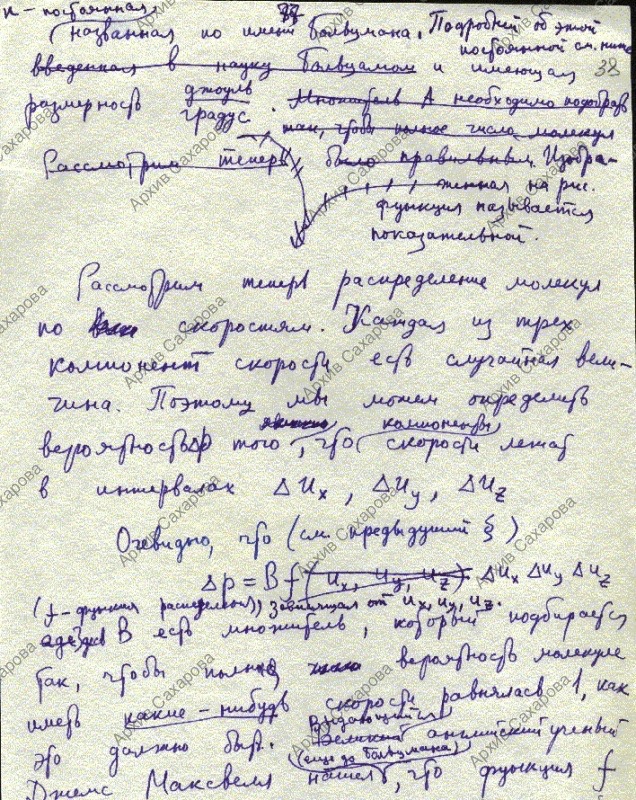 κ – постоянная,
названная по имени Больцмана. Подробней об этой
постоянной см. ниже
введенная в науку Больцманом и имеющая
38
размерность джоуль
градус. Множитель А необходимо подобрать
так, чтобы полное число молекул
Рассмотрим теперь было правильным. Изобра-
женная на рис.
функция называется
показательной.
Рассмотрим теперь распределение молекул
по скоростям. Каждая из трех
компонент скорости есть случайная вели-
чина. Поэтому мы можем определить
вероятность Δp того, что компоненты скорости лежат
в интервалах Δu_x, Δu_y, Δu_z
Очевидно, что (см. предыдущий §)
Δp = B f (u_x, u_y, u_z) Δu_x Δu_y Δu_z
(f – функция распределения), зависящая от u_x, u_y, u_z.
здесь B есть множитель, который подбирается
так, чтобы полная вероятность молекуле
иметь какие-нибудь скорости равнялась 1, как
это должно быть. Великий выдающийся английский ученый
Джемс Максвелл (еще до Больцмана) нашел, что функция f
Архив Сахарова